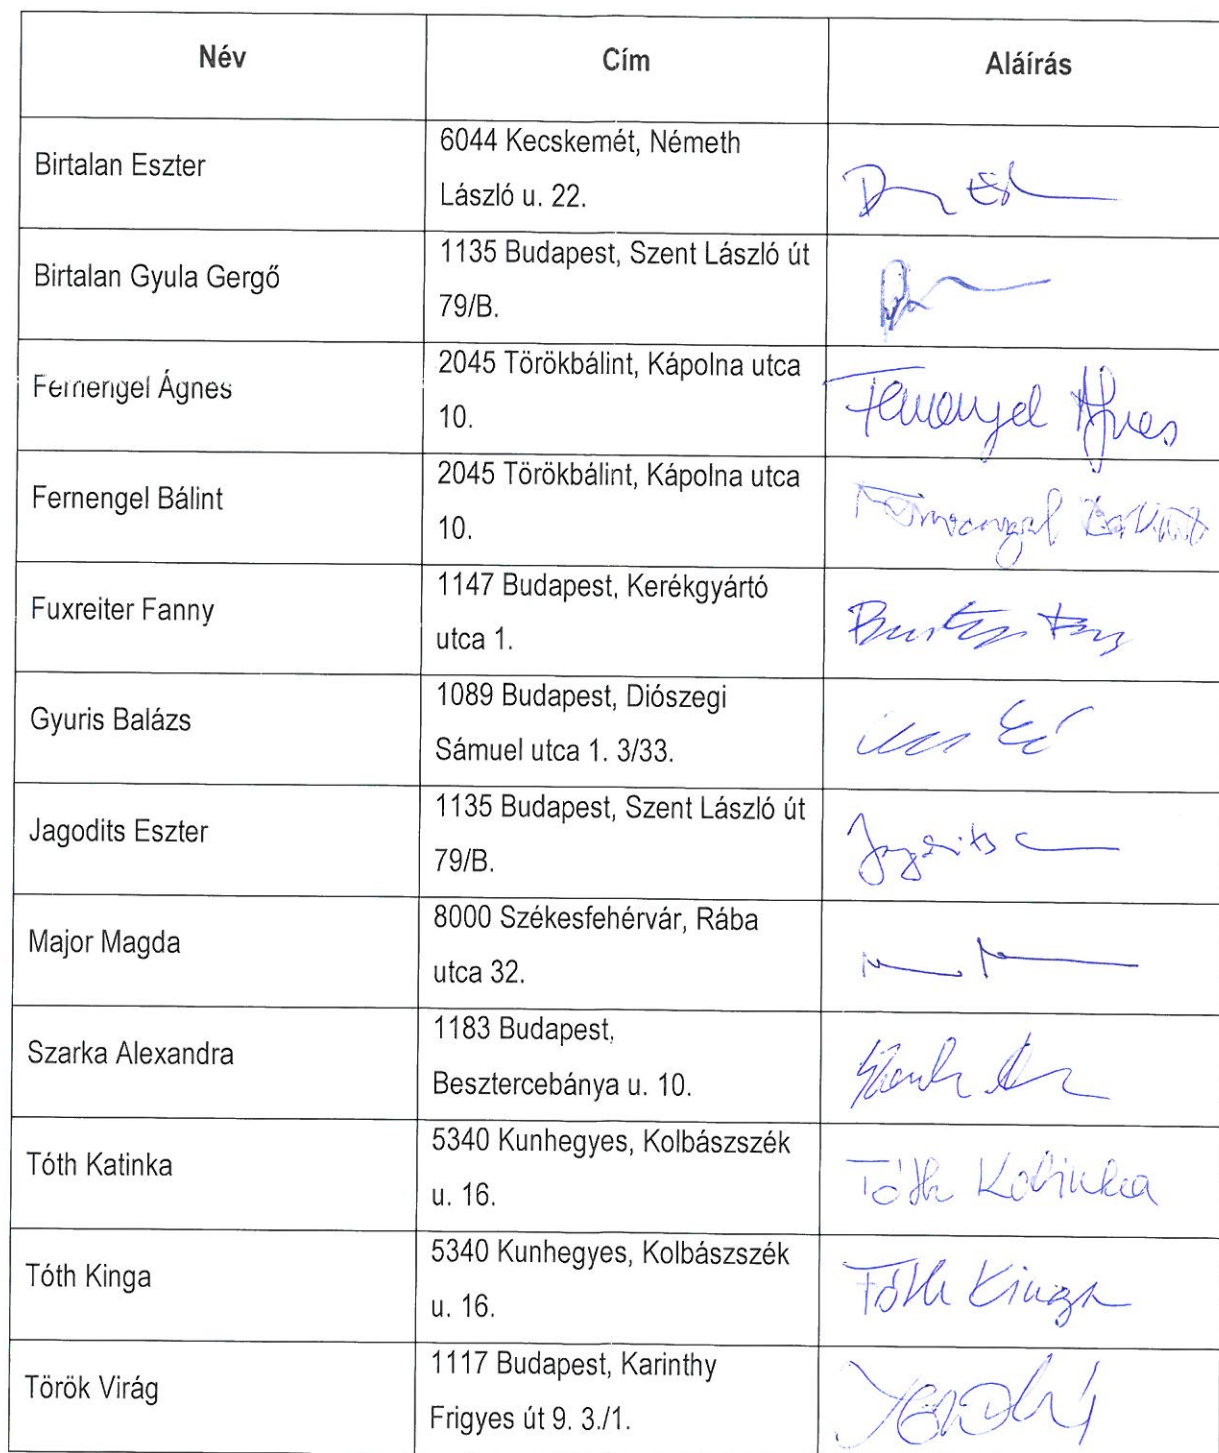 Név Cím Aláírás
Birtalan Eszter
6044 Kecskemét, Németh
László u. 22.
Birtalan Gyula Gergő
1135 Budapest, Szent László út
79/B.
Fernengel Ágnes
2045 Törökbálint, Kápolna utca
10.
Fernengel Ágnes
Fernengel Bálint
2045 Törökbálint, Kápolna utca
10.
Fernengel Bálint
Fuxreiter Fanny
1147 Budapest, Kerékgyártó
utca 1.
Gyuris Balázs
1089 Budapest, Diószegi
Sámuel utca 1. 3/33.
Jagodits Eszter
1135 Budapest, Szent László út
79/B.
Jagodits
Major Magda
8000 Székesfehérvár, Rába
utca 32.
Szarka Alexandra
1183 Budapest,
Besztercebánya u. 10.
Tóth Katinka
5340 Kunhegyes, Kolbászszék
u. 16.
Tóth Katinka
Tóth Kinga
5340 Kunhegyes, Kolbászszék
u. 16.
Tóth Kinga
Török Virág
1117 Budapest, Karinthy
Frigyes út 9. 3./1.